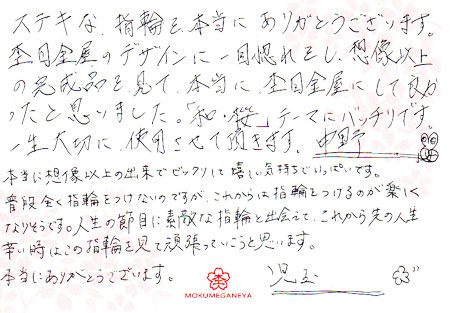 ステキな、指輪を、本当に ありがとうございます。
杢目金屋のデザインに一目惚れをし、想像以上
の完成品を見て、本当に、杢目金屋にして良か
ったと思いました。「和・桜」テーマにバッチリです。
一生大切に、使用させて頂きます。 中野
本当に想像以上の出来でビックリして嬉しい気持ちでいっぱいです。
普段全く指輪をつけないのですが、これからは指輪をつけるのが楽しく
なりそうです。人生の節目に素敵な指輪と出会えて、これから先の人生
辛い時はこの指輪を見て頑張っていこうと思います。
本当にありがとうございます。 児玉
MOKUMEGANEYA